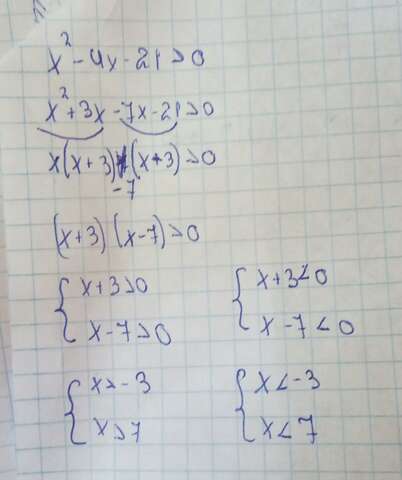 x² - 4x - 21 > 0
x² + 3x - 7x - 21 > 0
x(x+3) -7(x+3) > 0
(x+3)(x-7) > 0
{ x+3>0 { x+3<0
{ x-7>0 { x-7<0
{ x>-3 { x<-3
{ x>7 { x<7